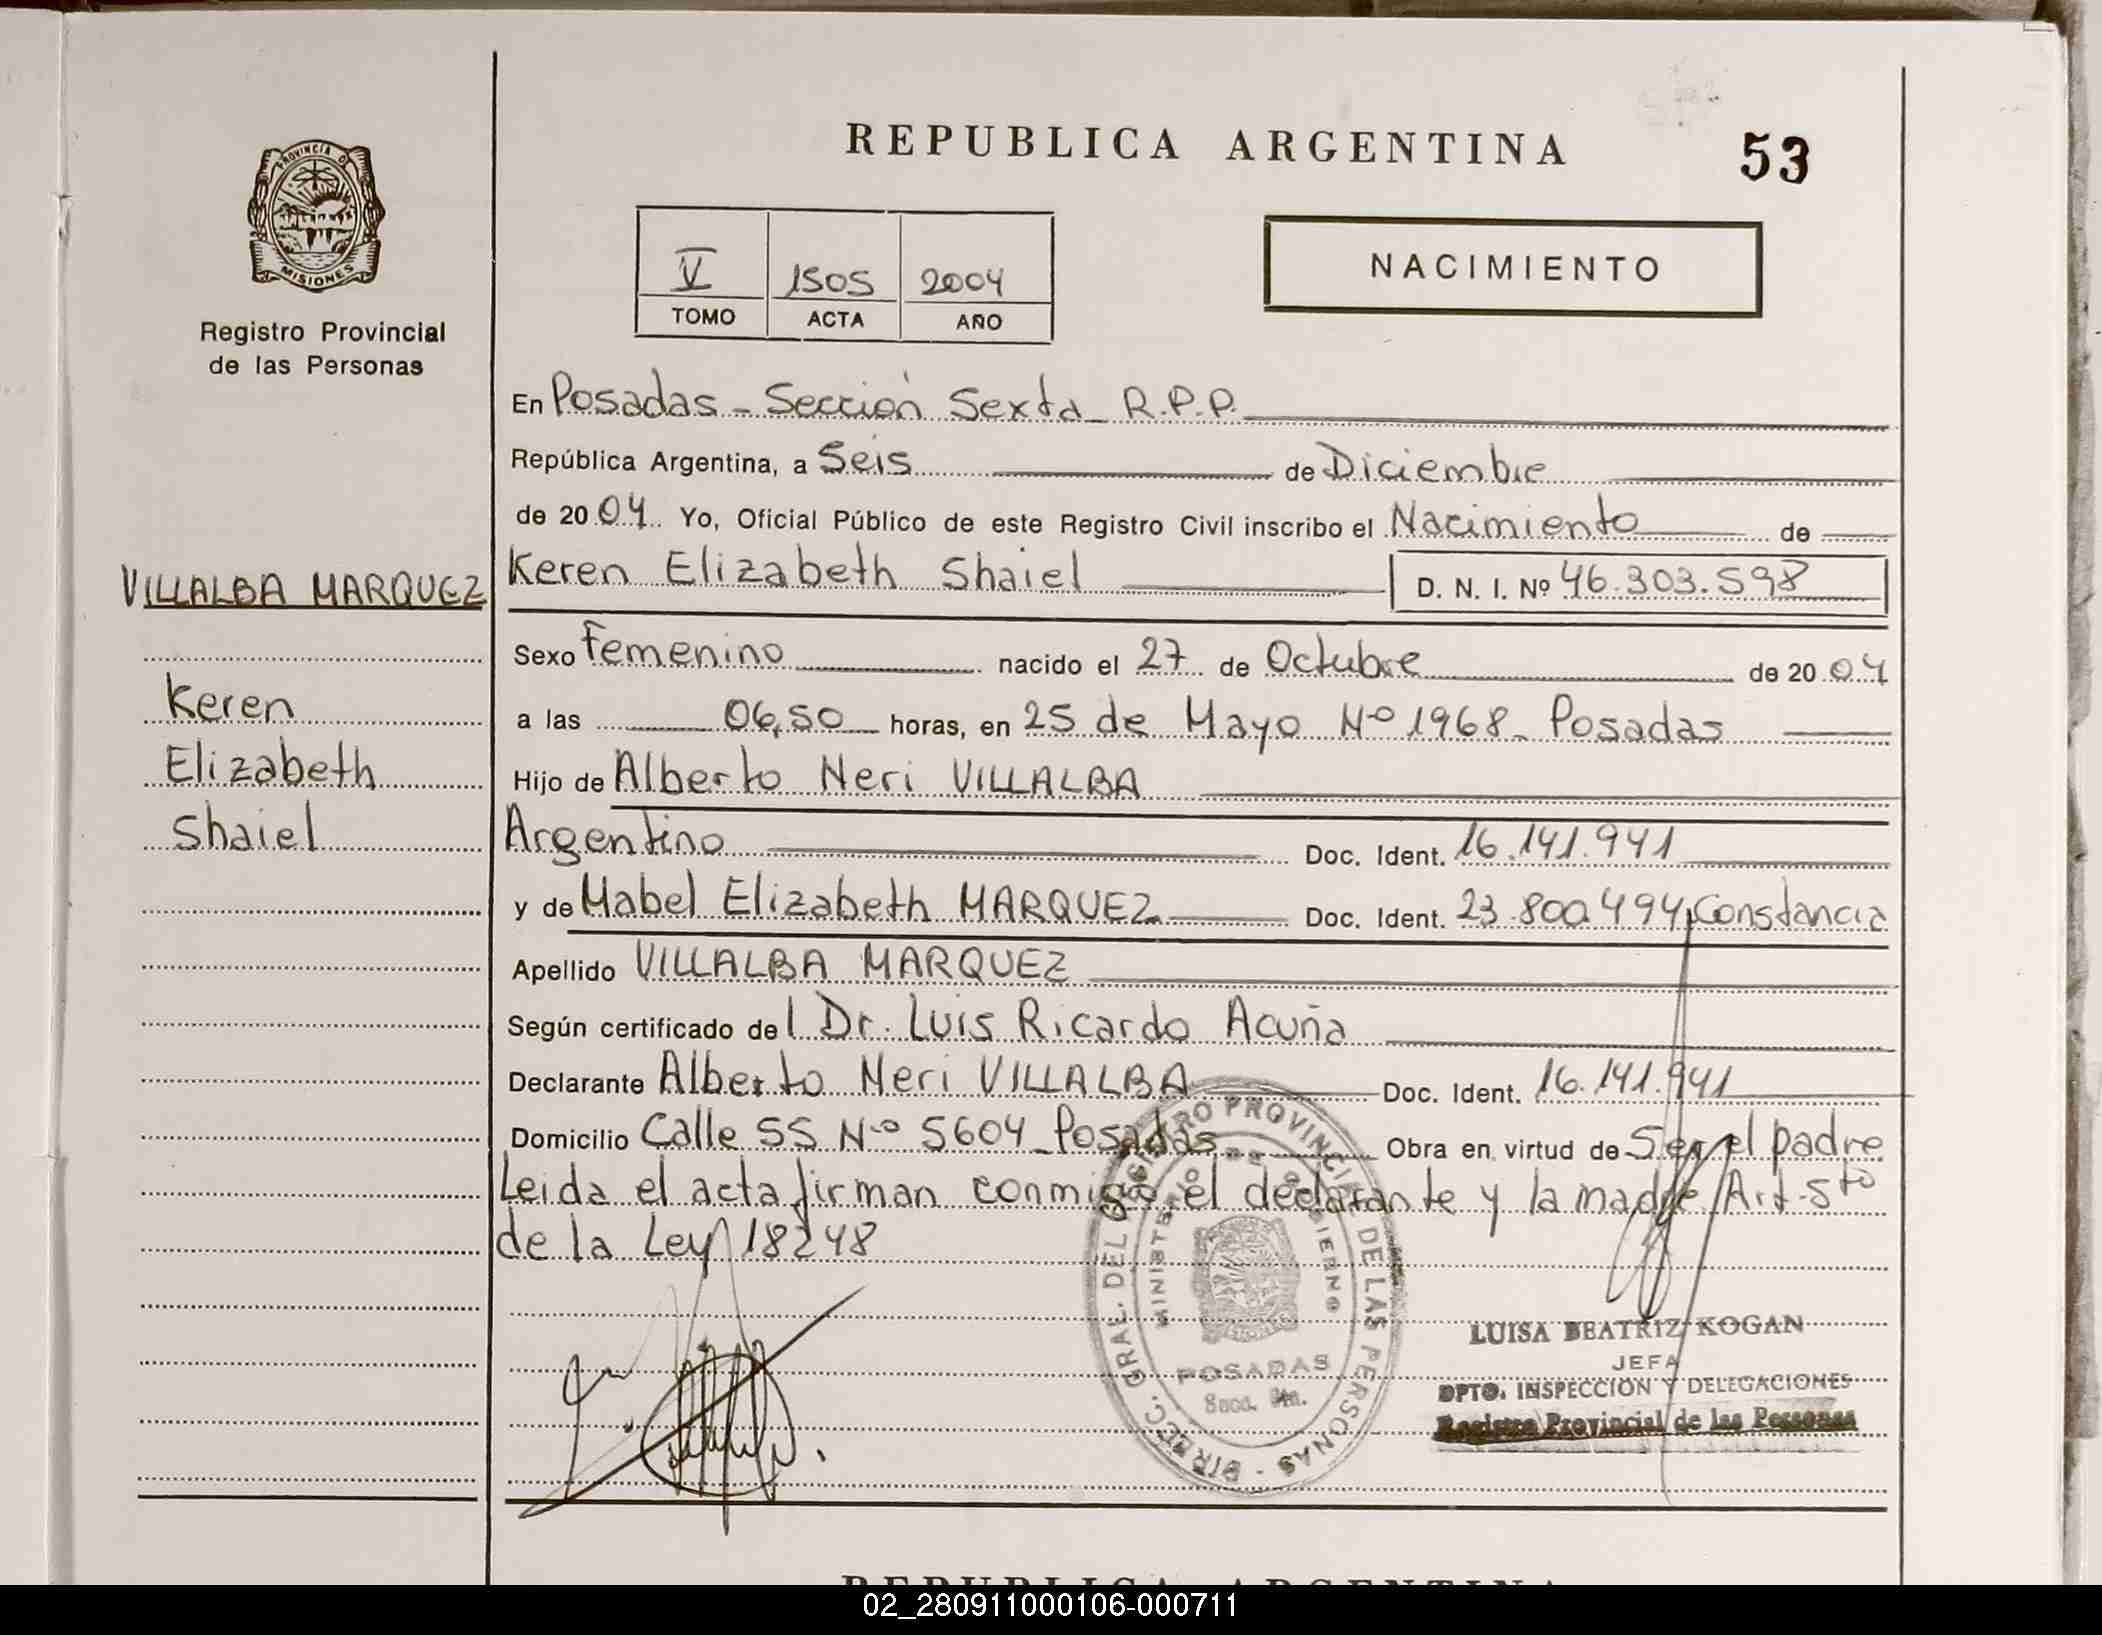 REPUBLICA ARGENTINA
53
PROVINCIA D
MISIONES
Registro Provincial
de las Personas
V 1505 2004
TOMO ACTA AÑO
NACIMIENTO
En Posadas - Sección Sexta - R.P.P.
República Argentina, a Seis de Diciembre
de 2004. Yo, Oficial Público de este Registro Civil inscribo el Nacimiento de
VILLALBA MARQUEZ
Keren Elizabeth Shaiel D. N. I. Nº 46.303.598
Sexo Femenino nacido el 27 de Octubre de 2004
Keren
a las 06,50 horas, en 25 de Mayo Nº 1968 - Posadas
Elizabeth
Hijo de Alberto Neri VILLALBA
Shaiel
Argentino Doc. Ident. 16.141.941
y de Mabel Elizabeth MARQUEZ Doc. Ident. 23.800.494, Constancia
Apellido VILLALBA MARQUEZ
Según certificado del Dr. Luis Ricardo Acuña
Declarante Alberto Neri VILLALBA Doc. Ident. 16.141.941
Domicilio Calle 55 Nº 5604 - Posadas Obra en virtud de Ser el padre
Leida el acta firman conmigo el declarante y la madre Art. 5to
de la Ley 18248
DIREC. GRAL. DEL REGISTRO PROVINCIAL DE LAS PERSONAS
MINISTERIO DE GOBIERNO
POSADAS
LUISA BEATRIZ KOGAN
JEFA
DPTO. INSPECCION Y DELEGACIONES
Registro Provincial de las Personas
REPUBLICA ARGENTINA
02_280911000106-000711